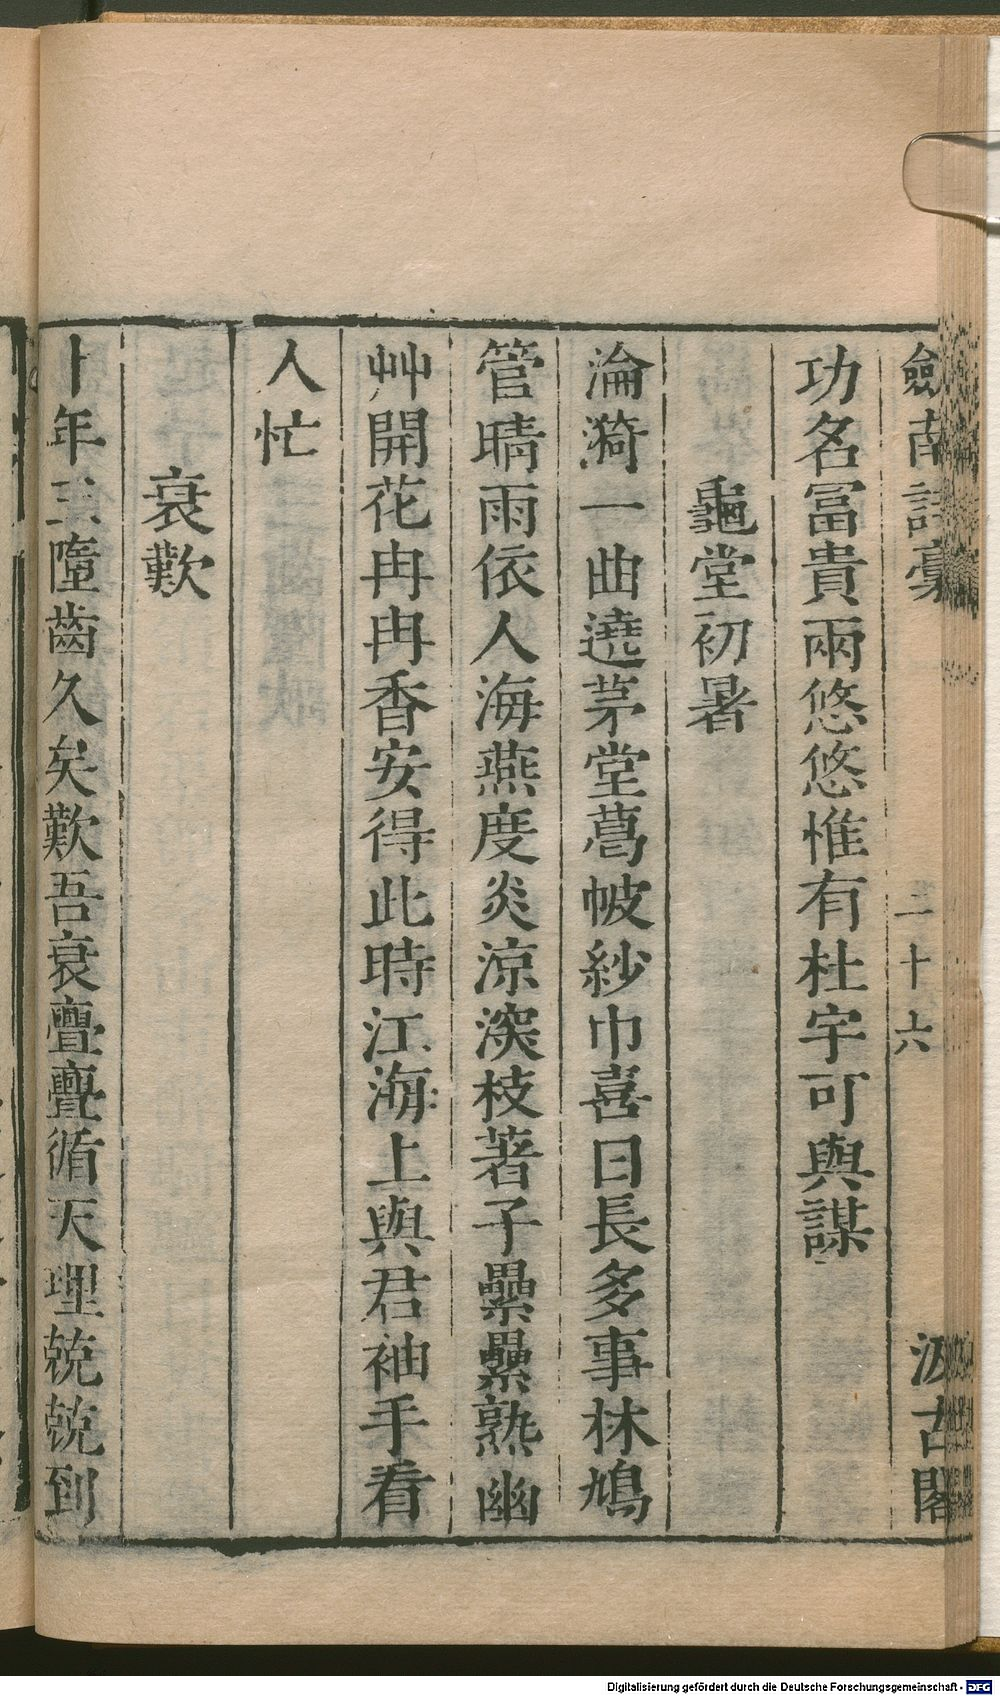 劒南詩稾
二十六
汲古閣
功名冨貴兩悠悠惟有杜宇可與謀
龜堂初暑
淪漪一曲遶茅堂葛帔紗巾喜日長多事林鳩
管晴雨依人海燕度炎涼深枝著子纍纍熟幽
艸開花冉冉香安得此時江海上與君袖手看
人忙
衰歎
十年三墮齒久矣歎吾衰亹亹循天理兢兢到
Digitalisierung gefördert durch die Deutsche Forschungsgemeinschaft - DFG